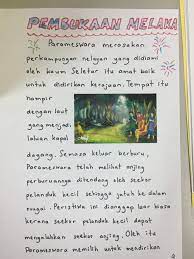 PEMBUKAAN MELAKA
Parameswara merasakan
perkampungan nelayan yang didiami
oleh kaum Seletar itu amat baik
untuk didirikan kerajaan. Tempat itu
hampir
dengan laut
yang menjadi
laluan kapal
dagang. Semasa keluar berburu,
Parameswara telah melihat anjing
perburuannya ditendang oleh seekor
pelanduk kecil sehingga jatuh ke dalam
sungai. Peristiwa ini dianggap luar biasa
kerana seekor pelanduk kecil dapat
mengalahkan seekor anjing. Oleh itu
Parameswara memilih untuk mendirikan